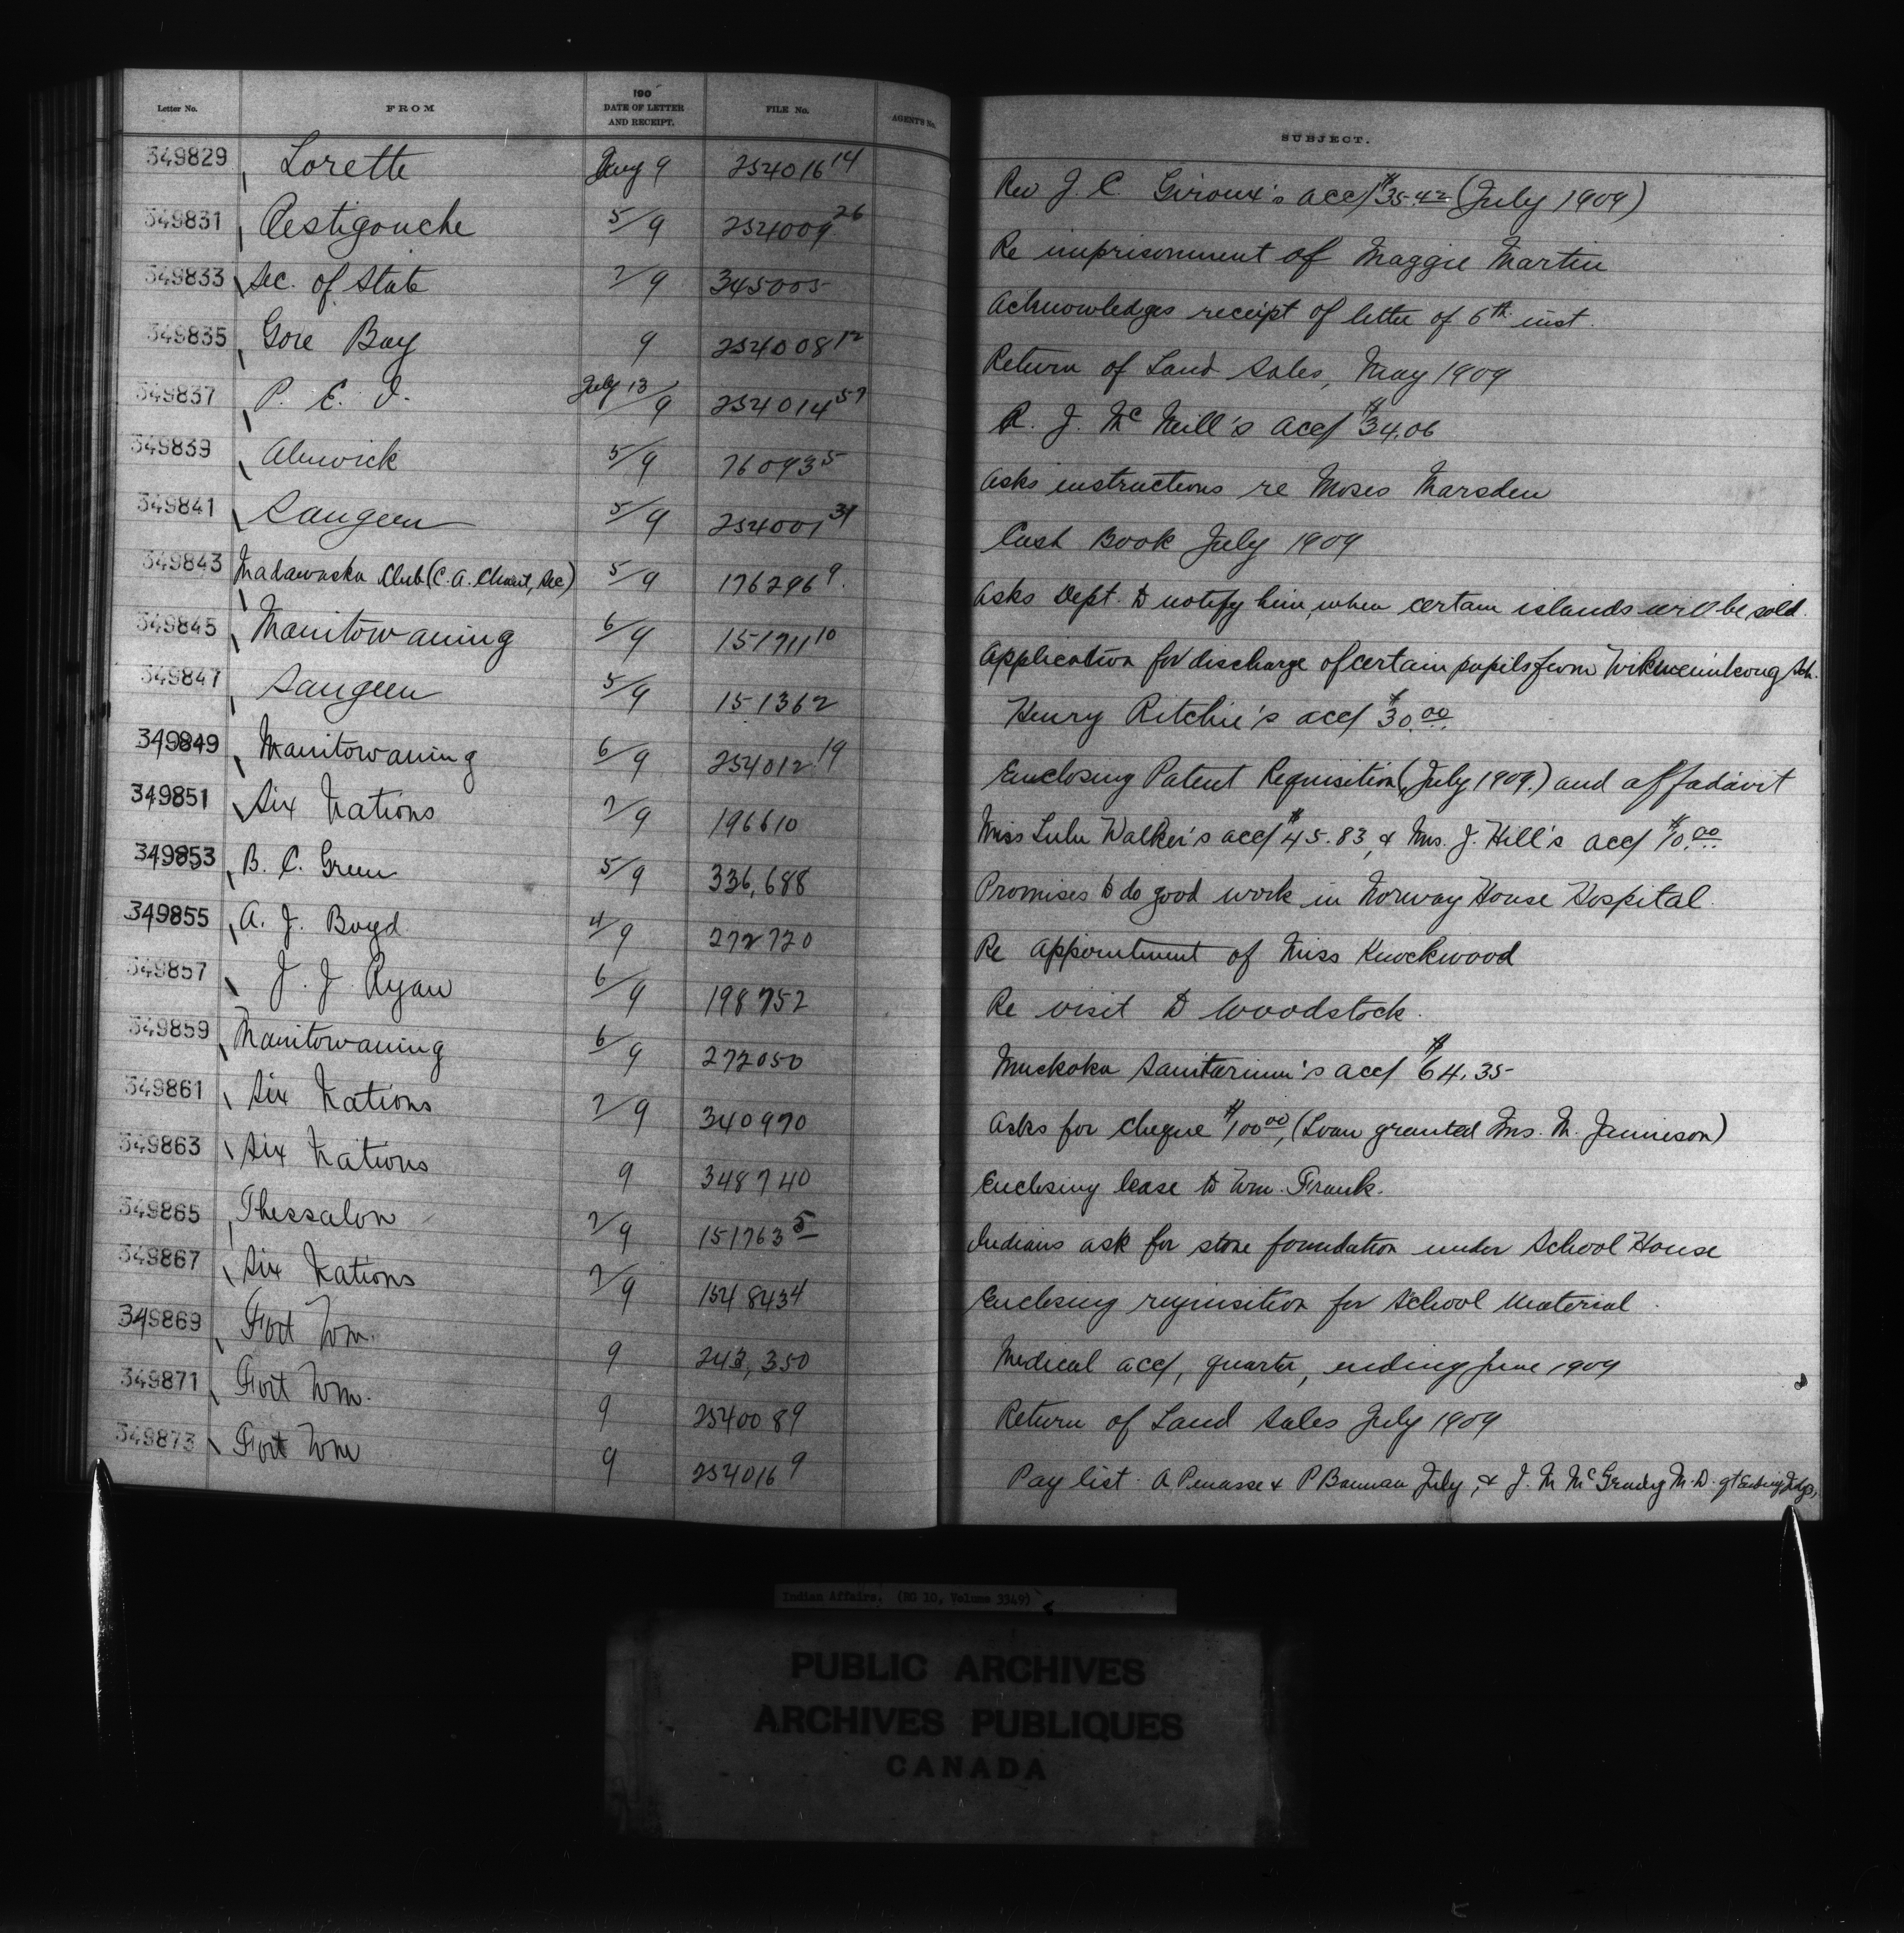 Letter No. FROM 190 DATE OF LETTER AND RECEIPT. FILE No. AGENT'S No. SUBJECT.
349829 Lorette Aug 9 254016 14 Rev J. C Giroux's acc/ $35.42 (July 1909)
349831 Restigouche 5/9 254009 26 Re imprisonment of Maggie Martin
349833 Sec. of State 2/9 345005 Acknowledges receipt of letter of 6th inst.
349835 Gore Bay 9 254008 12 Return of Land Sales, May 1909
349837 P. E. I. July 13/9 254014 57 R. J. McNeill's acc/ $34.06
349839 Alnwick 5/9 76093 5 Asks instructions re Moses Marsden
349841 Saugeen 5/9 254001 31 Cash Book July 1909
349843 Madawaska Club (C. A. Chant, Sec) 5/9 176296 9. Asks Dept. to notify him, when certain islands will be sold.
349845 Manitowaning 6/9 151711 10 Application for discharge of certain pupils from Wikwemikong Sch.
349847 Saugeen 5/9 151362 Henry Ritchie's acc/ $30.00
349849 Manitowaning 6/9 254012 19 Enclosing Patent Requisition (July 1909.) and affadavit
349851 Six Nations 2/9 196610 Miss Lulu Walker's acc/ $45.83, & Mrs. J. Hill's acc/ $10.00
349853 B. C. Green 5/9 336,688 Promises to do good work in Norway House Hospital.
349855 A. J. Boyd 4/9 272720 Re appointment of Miss Knockwood
349857 J. J. Ryan 6/9 198752 Re visit to Woodstock.
349859 Manitowaning 6/9 272050 Muskoka Sanitarium's acc/ $64.35
349861 Six Nations 2/9 340970 Asks for cheque $100 00, (Loan granted Mrs. M. Jamieson)
349863 Six Nations 9 348740 Enclosing lease to Wm. Frank.
349865 Thessalon 2/9 151763 5 Indians ask for stone foundation under School House
349867 Six Nations 2/9 154843 4 Enclosing requisition for School Material.
349869 Fort Wm. 9 243,350 Medical acc/, quarter, ending June 1909
349871 Fort Wm. 9 254008 9 Return of Land Sales July 1909
349873 Fort Wm 9 254016 9 Pay list. A. Penasse & P Bannan July, & J. M McGrady M.D.
Indian Affairs. (RG 10, Volume 3349)
PUBLIC ARCHIVES
ARCHIVES PUBLIQUES
CANADA